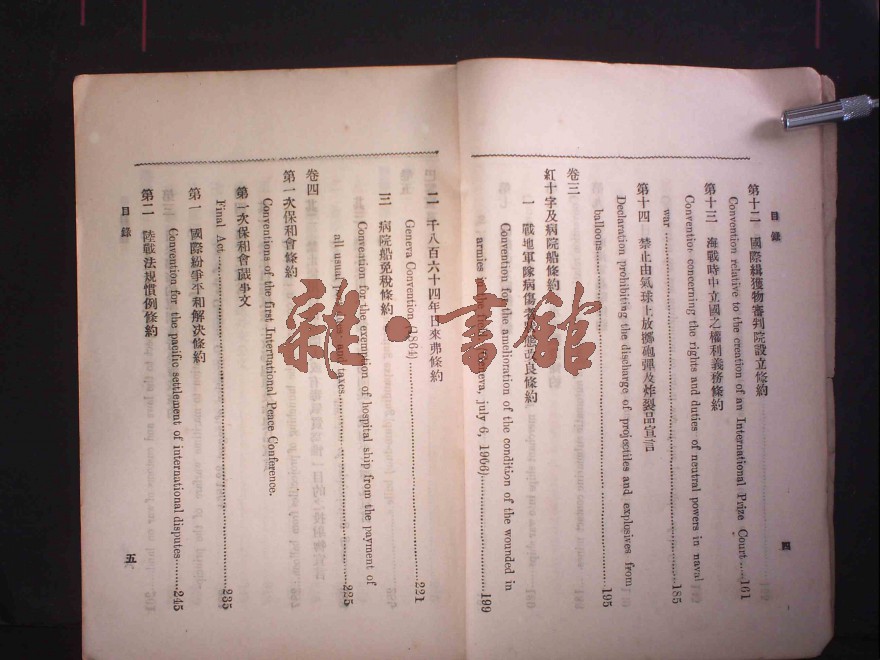 目錄
第十二 國際緝獲物審判院設立條約
Convention relative to the creation of an International Prize Court......161
第十三 海戰時中立國之權利義務條約
Convention concerning the rights and duties of neutral powers in naval
war......185
第十四 禁止由氣球上放擲砲彈及炸裂品宣言
Declaration prohibiting the discharge of projectiles and explosives from
balloons......195
卷三
紅十字及病院船條約
一 戰地軍隊病傷者狀態改良條約
Convention for the amelioration of the condition of the wounded in
armies in the field (Geneva, july 6, 1906)......199
四
二 千八百六十四年日來弗條約
Geneva Convention (1864)......221
三 病院船免稅條約
Convention for the exemption of hospital ship from the payment of
all usual and taxes......225
卷四
第一次保和會條約
Conventions of the first International Peace Conference.
第一次保和會蕆事文
Final Act......235
第一 國際紛爭平和解決條約
Convention for the pacific settlement of international disputes......245
第二 陸戰法規慣例條約
目錄
五
雜·書館